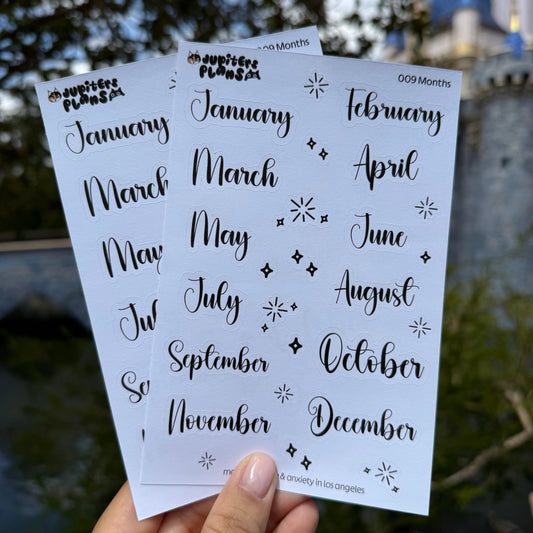 JUPITERS
PLANS
009 Months
January
February
March
April
May
June
July
August
September
October
November
December
& anxiety in los angeles
JUPITERS
PLANS
009 Months
January
March
May